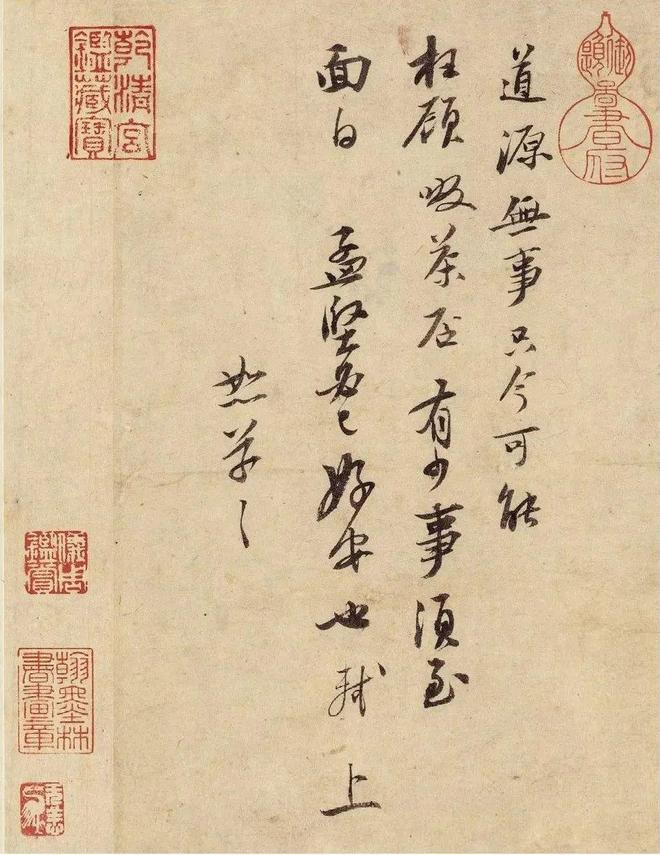 道源無事只今可能
枉顧啜茶否有少事須至
面白 孟堅必已好安也 軾 上
恕草々
乾清宮
鑑藏寶
儀周
鑑賞
翰墨林
書畫章